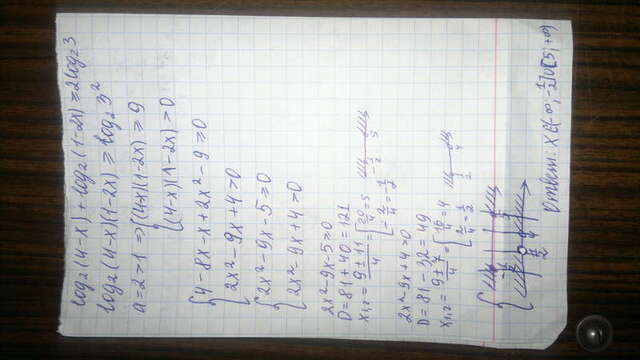 log₂(4-x)+log₂(1-2x)≥2log₂3
log₂(4-x)(1-2x)≥log₂3²
a=2>1 ⇒ {(4-x)(1-2x)≥9
{(4-x)(1-2x)>0
{4-8x-x+2x²-9≥0
2x²-9x+4>0
{2x²-9x-5≥0
2x²-9x+4>0
2x²-9x-5≥0
D=81+40=121
x₁,₂=(9±11)/4=[20/4=5
-2/4=-1/2
-1/2 5
2x²-9x+4>0
D=81-32=49
x₁,₂=(9±7)/4=[16/4=4
2/4=1/2
1/2 4
Ответ: x∈(-∞;-1/2]∪[5;+∞)